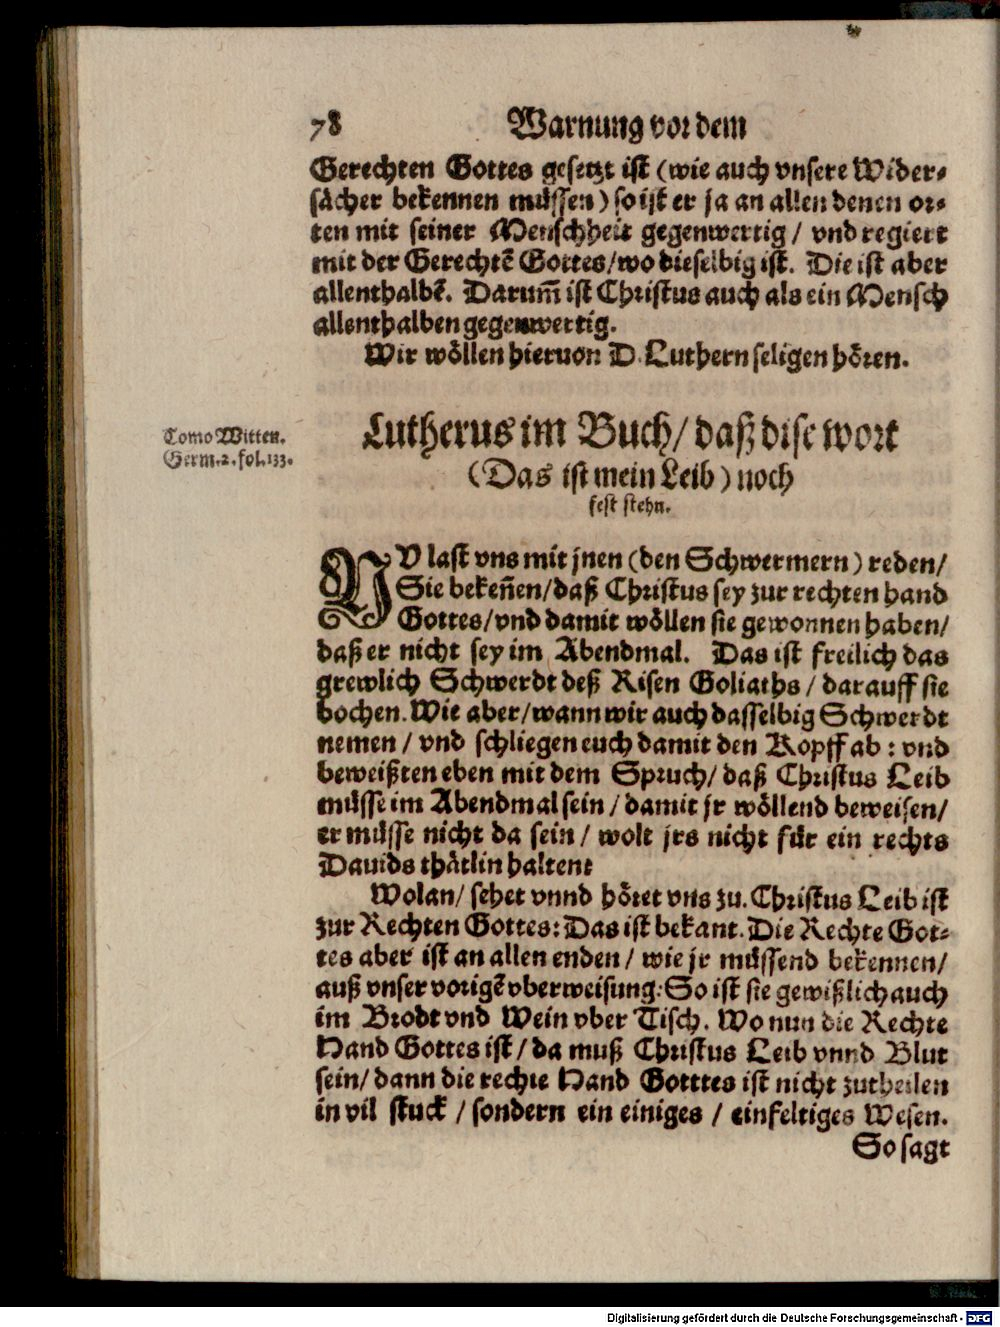 78 Warnung vor dem
Gerechten Gottes gesetzt ist (wie auch vnsere Wider-
sächer bekennen müssen) so ist er ja an allen denen or-
ten mit seiner Menschheit gegenwertig / vnd regiert
mit der Gerechtẽ Gottes / wo dieselbig ist. Die ist aber
allenthalbẽ. Darum̃ ist Christus auch als ein Mensch
allenthalben gegenwertig.
Wir wöllen hieruon D. Luthern seligen hören.
Tomo Witten.
Germ. 2. fol. 133.
Lutherus im Buch / daß dise wort
(Das ist mein Leib) noch
fest stehn.
NV last vns mit jnen (den Schwermern) reden /
Sie bekeñen / daß Christus sey zur rechten hand
Gottes / vnd damit wöllen sie gewonnen haben /
daß er nicht sey im Abendmal. Das ist freilich das
grewlich Schwerdt deß Risen Goliaths / darauff sie
bochen. Wie aber / wann wir auch dasselbig Schwerdt
nemen / vnd schliegen euch damit den Kopff ab : vnd
beweißten eben mit dem Spruch / daß Christus Leib
müsse im Abendmal sein / damit jr wöllend beweisen /
er müsse nicht da sein / wolt jrs nicht für ein rechts
Dauids thätlin halten?
Wolan / sehet vnnd höret vns zu. Christus Leib ist
zur Rechten Gottes : Das ist bekant. Die Rechte Got-
tes aber ist an allen enden / wie jr müssend bekennen /
auß vnser vorigẽ vberweisung : So ist sie gewißlich auch
im Brodt vnd Wein vber Tisch. Wo nun die Rechte
Hand Gottes ist / da muß Christus Leib vnnd Blut
sein / dann die rechte Hand Gotttes ist nicht zutheilen
in vil stuck / sondern ein einiges / einfeltiges Wesen.
So sagt
Digitalisierung gefördert durch die Deutsche Forschungsgemeinschaft - DFG